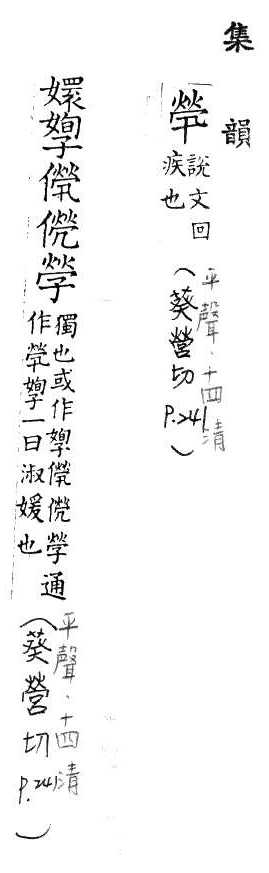 集韻
煢
說文回
疾也
(葵營切 P.241)
平聲.十四清
嬛儝
獨也或作儝通
作煢一曰淑媛也
(葵營切 P.241)
平聲.十四清